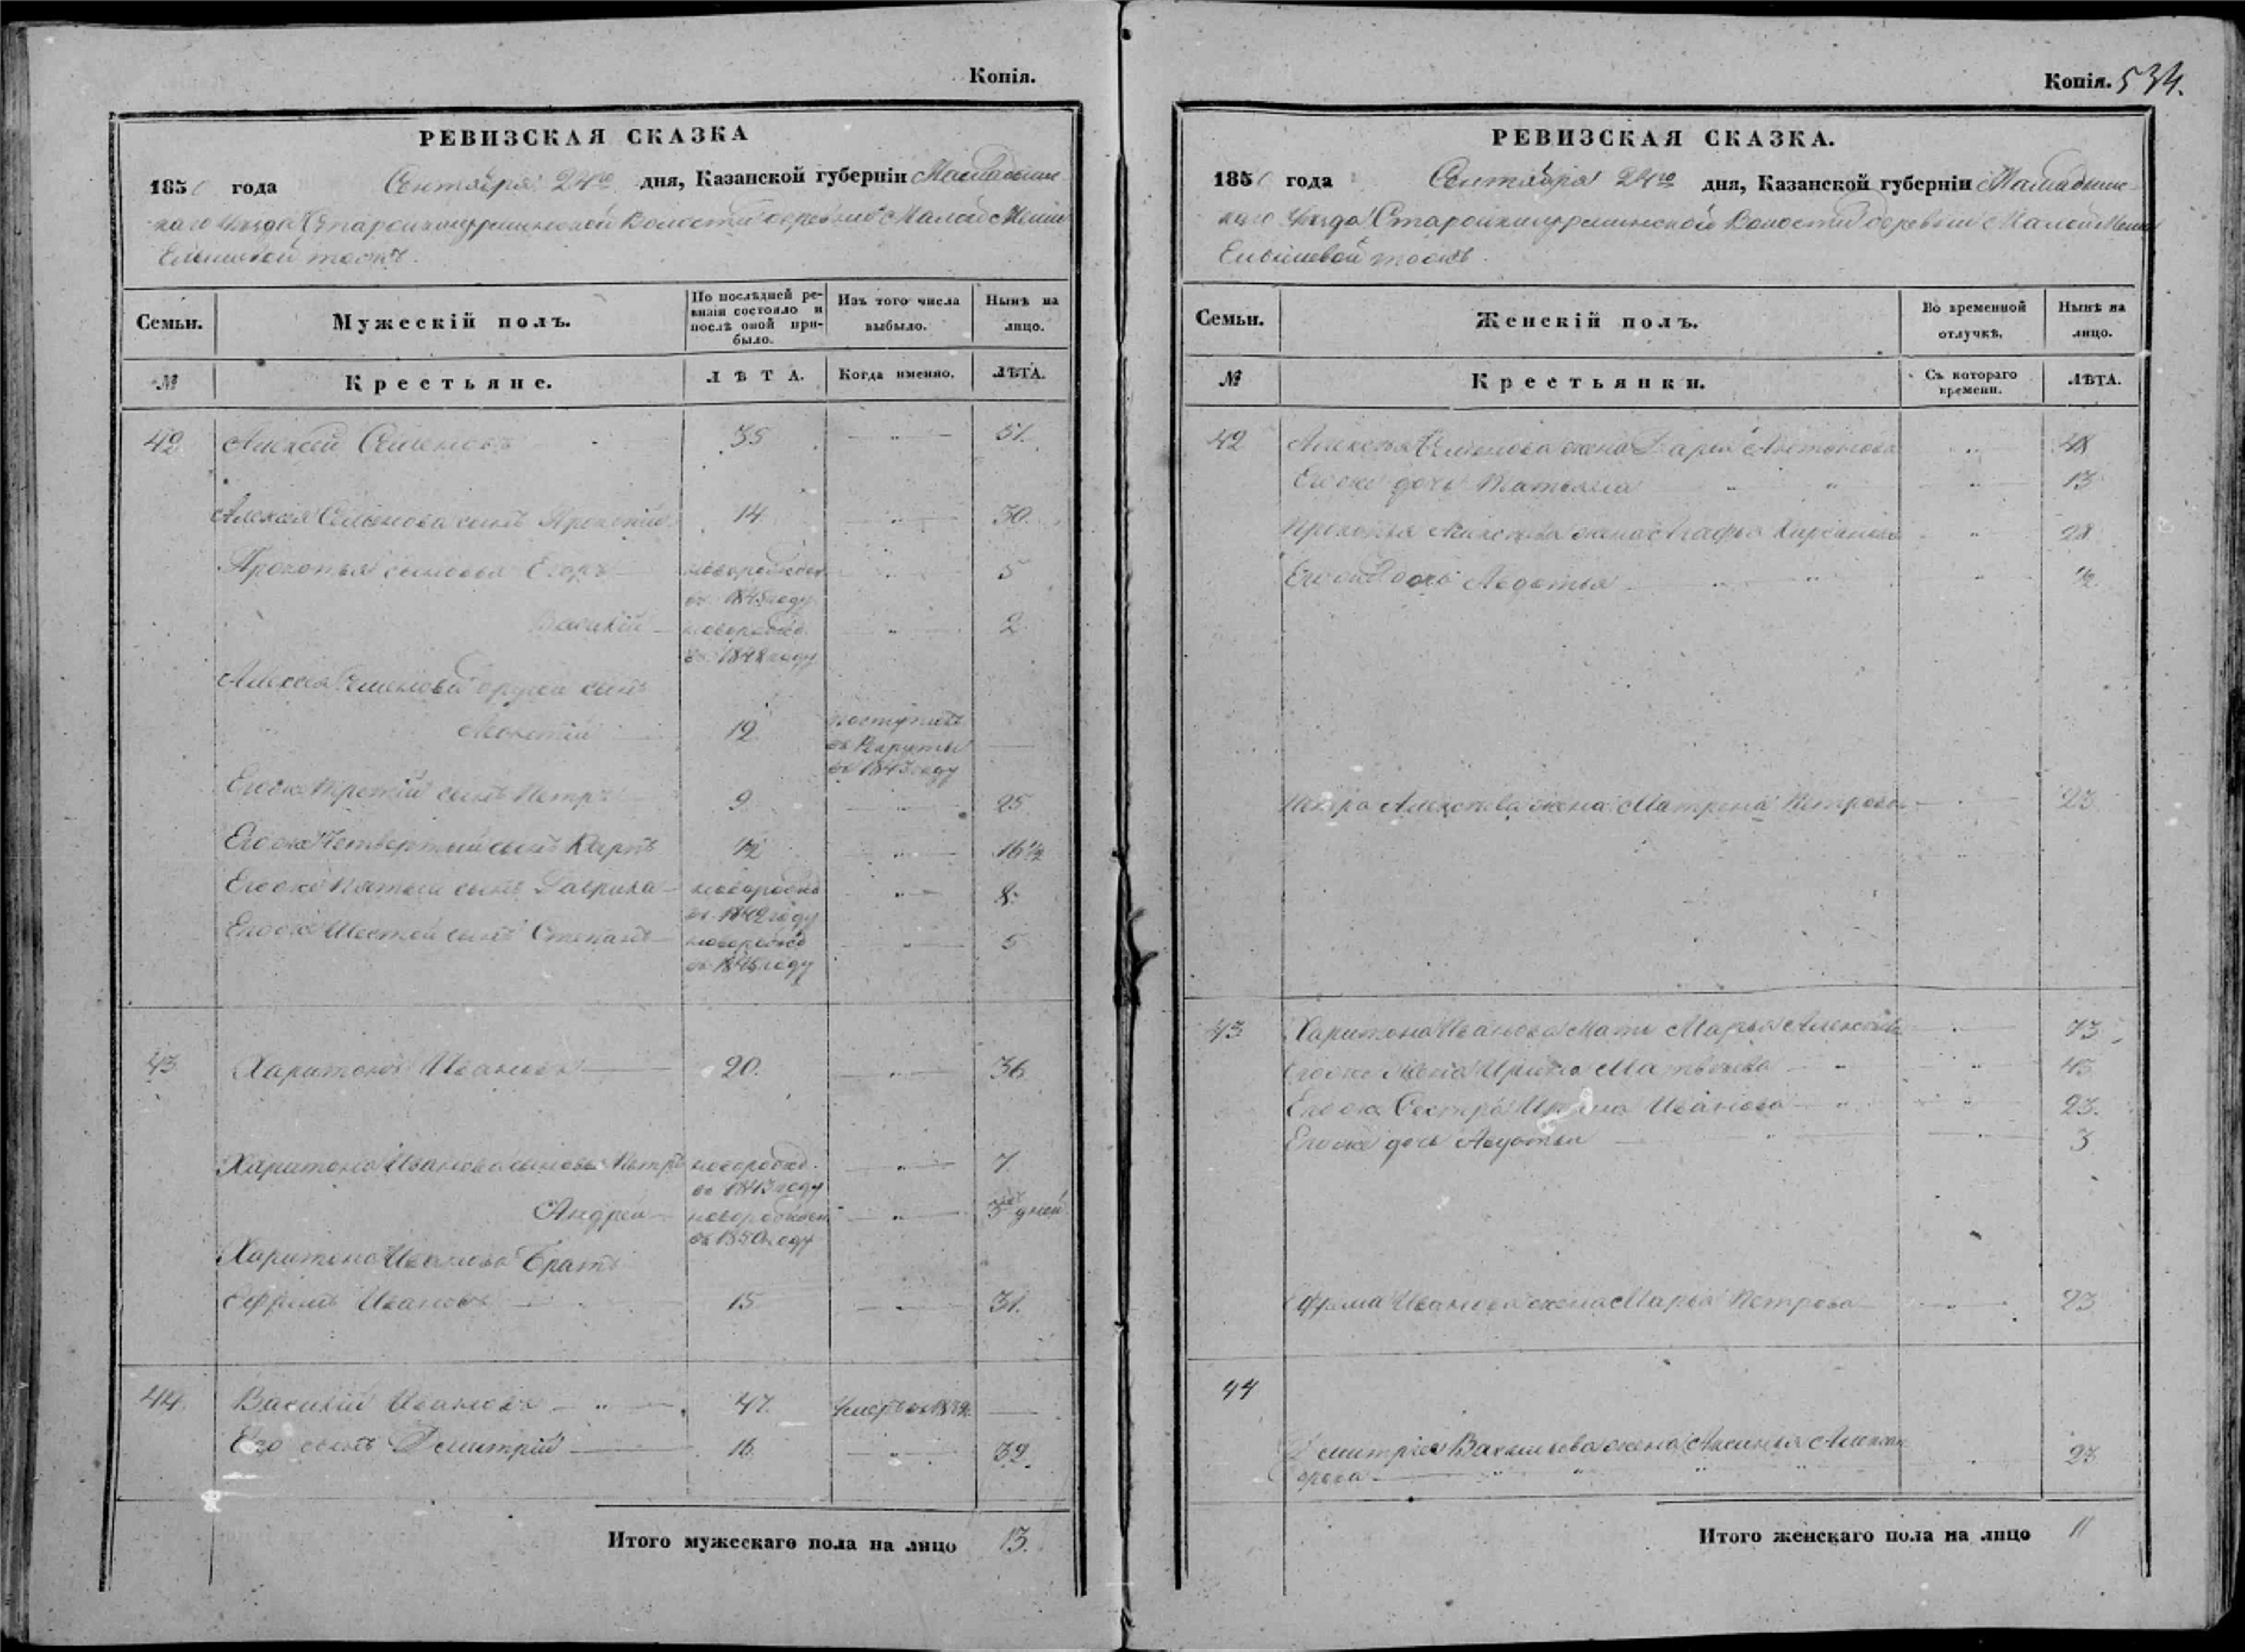 Копія.
РЕВИЗСКАЯ СКАЗКА
1850 года Сентября 24го дня, Казанской губерніи Мамадыш-
каго Уѣзда Старокингурминской Волости деревни Малой
тожъ.
Семьи.
Мужескій полъ.
По послѣдней ре-
визіи состояло и
послѣ оной при-
было.
Изъ того числа
выбыло.
Нынѣ на
лицо.
№
Крестьяне.
ЛѢТА.
Когда именно.
ЛѢТА.
42 Алексей Семеновъ 35 — „ — 51.
Алексея Семенова сынъ Прокопій 14 — „ — 30.
Прокопья сыновья Егоръ — новорожден — „ — 5
въ 1845 году
Василій — новорожд. — „ — 2
въ 1848 году
Алексея Семенова другой сынъ
12 поступилъ —
въ Рекруты
въ 1843 году
Его же третій сынъ Петръ 9 — „ — 25
Его же Четвертый сынъ Карпъ 1/2 — „ — 16 1/2
Его же Пятый сынъ Гаврила — новорожд — „ — 8
въ 1842 году
Его же Шестой сынъ Степанъ — новорожд — „ — 5
въ 1845 году
43 Харитонъ Ивановъ — 20. — „ — 36
Харитона Иванова сыновья Петръ новорожд. — „ — 7
въ 1843 году
Андрей — новорожден — „ — 3 дней
въ 1850 году
Харитона Иванова Братъ
Ефремъ Ивановъ — 15 — „ — 31.
44. Василій Ивановъ — „ — 47. Умеръ въ 1839. —
Его сынъ Дмитрій — 16 — „ — 32.
Итого мужескаго пола на лицо 13.
Копія. 534.
РЕВИЗСКАЯ СКАЗКА.
1850 года Сентября 24го дня, Казанской губерніи Мамадыш-
каго Уѣзда Старокингурминской Волости деревни Малой
тожъ.
Семьи.
Женскій полъ.
Во временной
отлучкѣ.
Нынѣ на
лицо.
№
Крестьянки.
Съ котораго
времени.
ЛѢТА.
42 Алексея Семенова жена Дарья Антонова „ — 48
Его же дочь Татьяна „ „ — „ — 13
Прокопья Алексеева жена Агафья Кирсанова — „ — 28
Его же дочь Авдотья „ „ „ 1/2
Петра Алексеева жена Матрена Петрова — „ — 23
43 Харитона Иванова Мать Марья Алексеева „ — 73
Его же Жена Ирина Матвеева — „ — „ — 45
Его же Сестра Ирина Иванова — „ — „ — 23.
Его же дочь Авдотья — „ — „ — 3
Ефрема Иванова жена Марья Петрова — „ — 23
44
Дмитрія Васильева жена Аксинья Алексан
дрова — „ „ „ „ „ 23
Итого женскаго пола на лицо 11